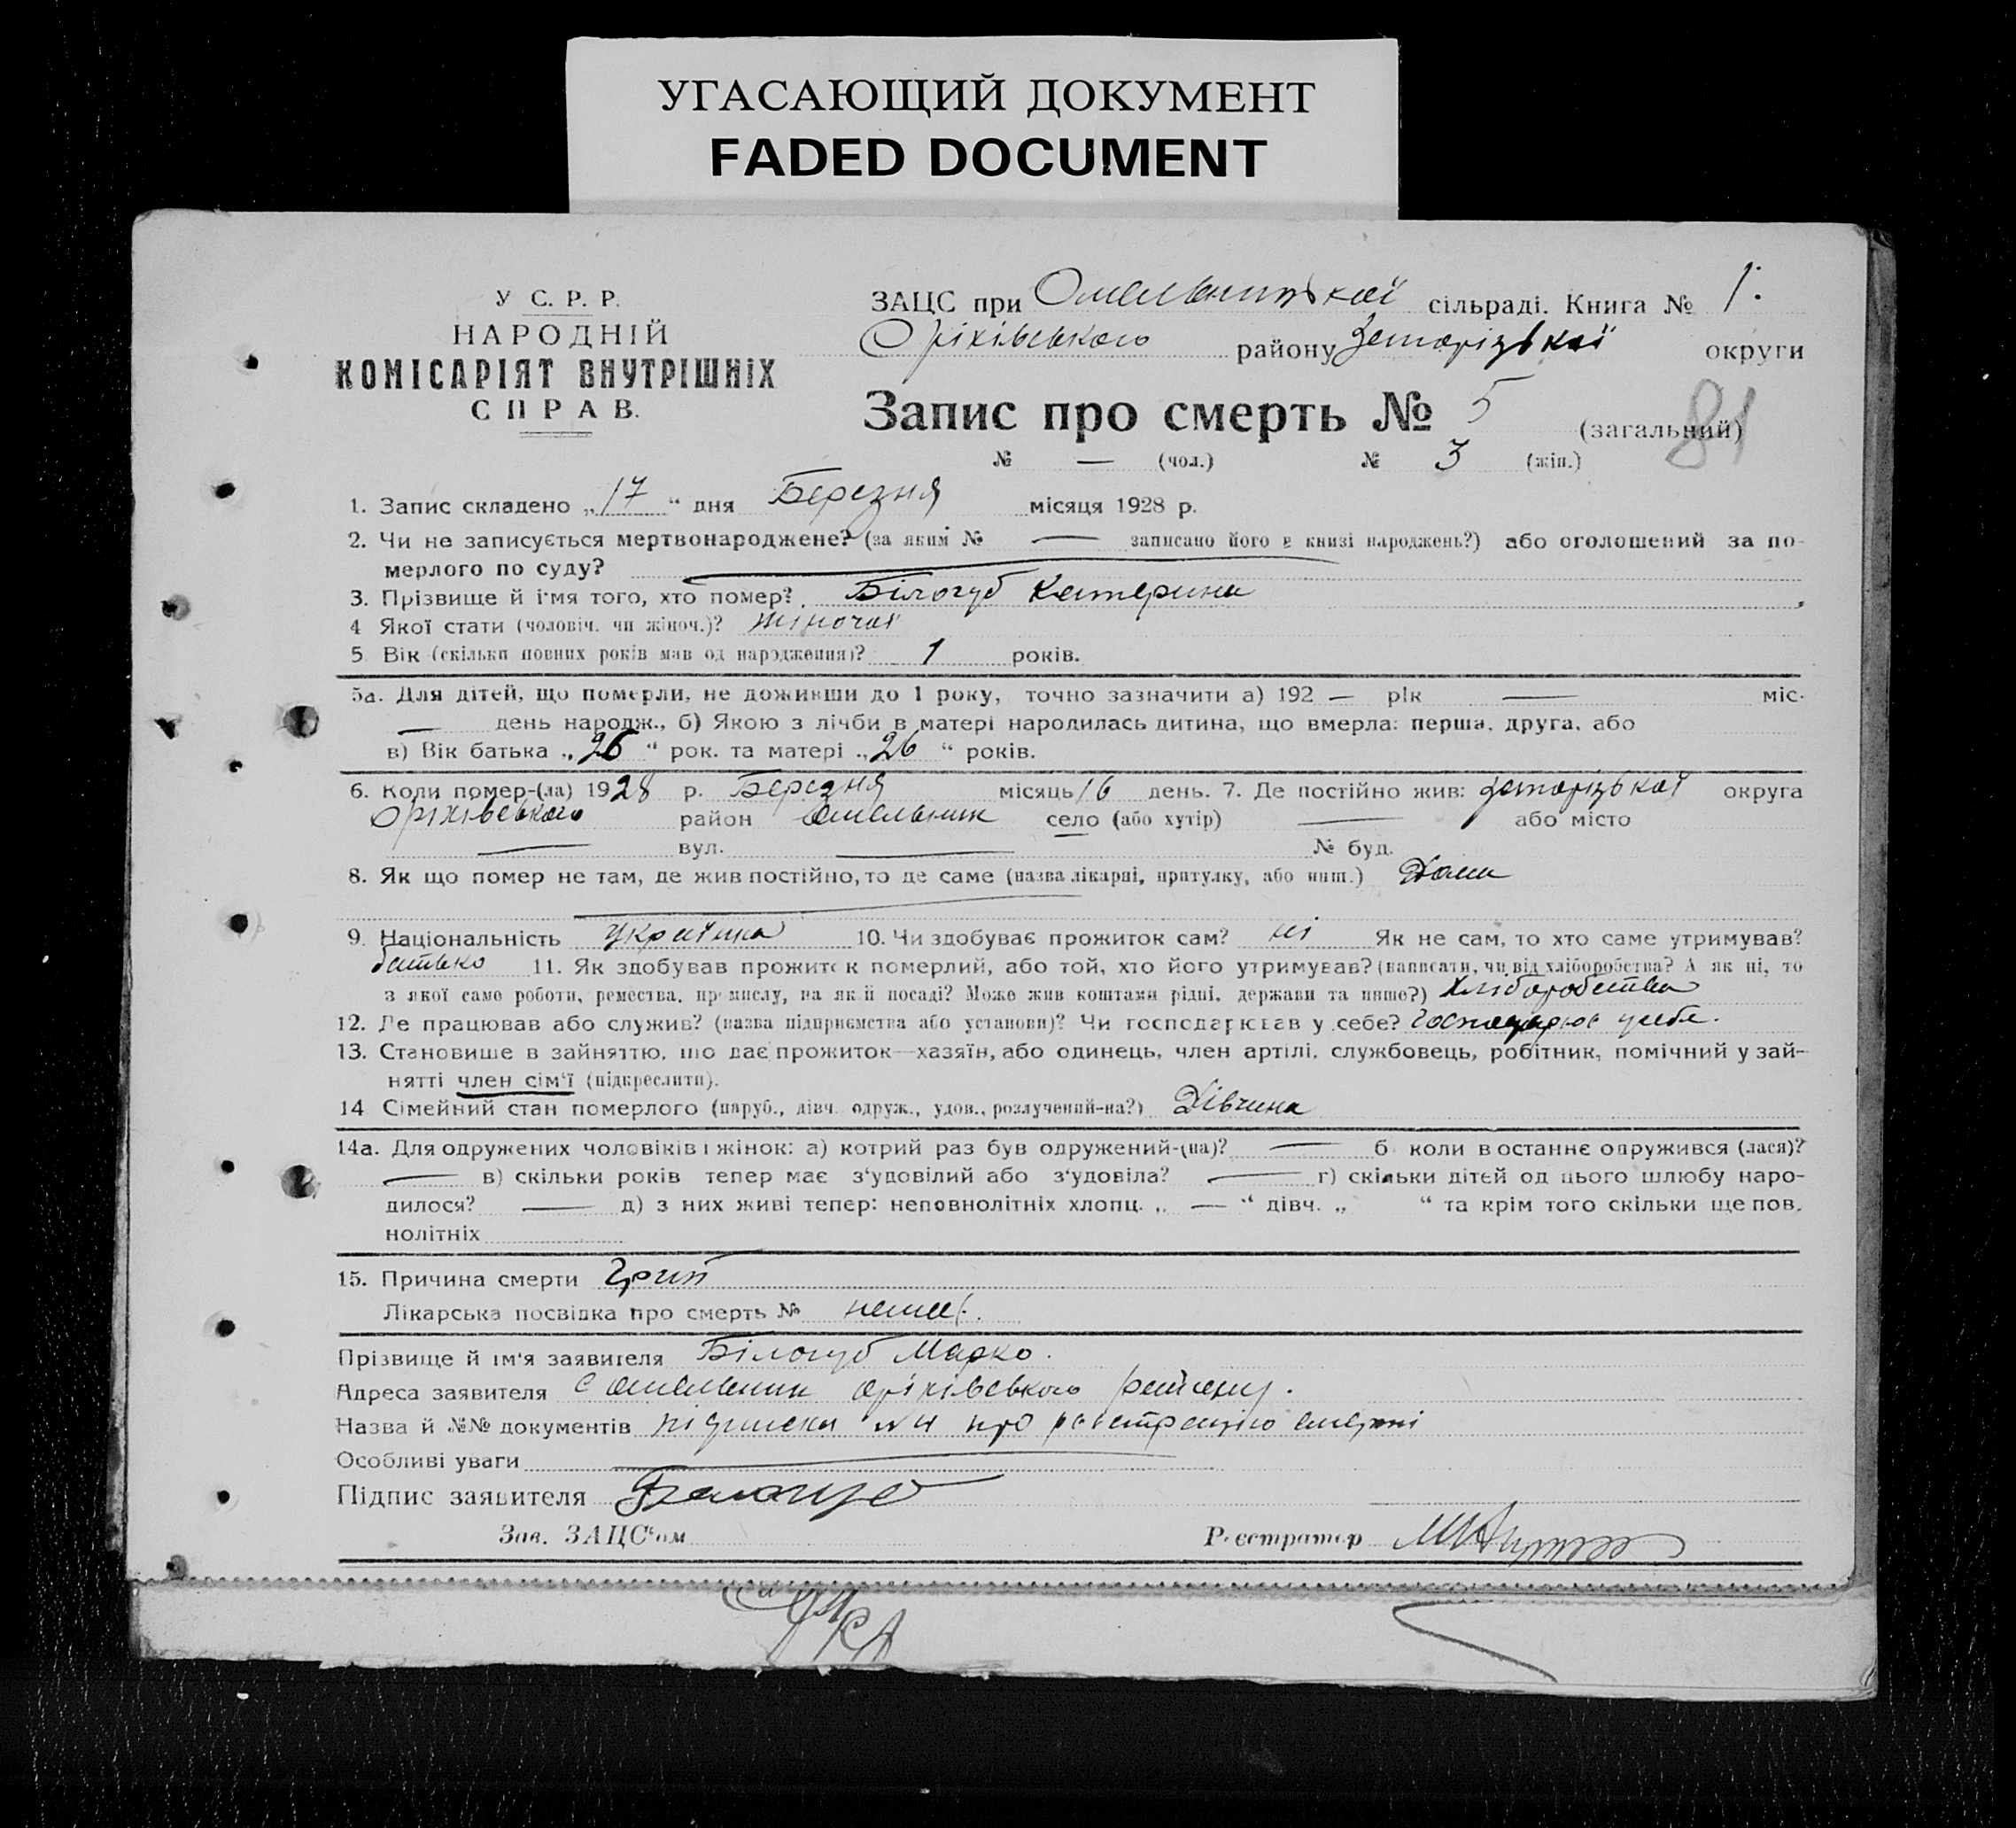 УГАСАЮЩИЙ ДОКУМЕНТ
FADED DOCUMENT
У С. Р. Р.
НАРОДНІЙ
КОМІСАРІЯТ ВНУТРІШНІХ
СПРАВ.
ЗАЦС при Омельницької сільраді. Книга № 1.
Оріхівського району Запорізької округи
Запис про смерть № 5 (загальний) 81
№ — (чол.) № 3 (жін.)
1. Запис складено „17“ дня Березня місяця 1928 р.
2. Чи не записується мертвонароджене? (за яким № — записано його в книзі народжень?) або оголошений за по-
мерлого по суду?
3. Прізвище й ім'я того, хто помер? Білогуб Катерина
4 Якої стати (чоловіч. чи жіноч.)? жіночої
5. Вік (скільки повних років мав од народження)? 1 років.
5а. Для дітей, що померли, не доживши до 1 року, точно зазначити а) 192 — рік — міс.
— день народж., б) Якою з лічби в матері народилась дитина, що вмерла: перша, друга, або
в) Вік батька „26“ рок. та матері „26“ років.
6. Коли помер-(ла) 1928 р. Березня місяць 16 день. 7. Де постійно жив: Запорізької округа
Оріхівського район Омельник село (або хутір) — або місто
— вул. — № буд.
8. Як що помер не там, де жив постійно, то де саме (назва лікарні, притулку, або инш.) Дома
9. Національність Українка 10. Чи здобуває прожиток сам? ні Як не сам, то хто саме утримував?
батько 11. Як здобував прожиток померлий, або той, хто його утримував? (написати, чи від хліборобства? А як ні, то
з якої саме роботи, ремества, промислу, на якій посаді? Може жив коштами рідні, держави та инше?) Хліборобства
12. Де працював або служив? (назва підприємства або установи)? Чи господарював у себе? Господарює у себе.
13. Становище в зайняттю, що дає прожиток—хазяїн, або одинець, член артілі, службовець, робітник, помічний у зай-
нятті член сім'ї (підкреслити).
14 Сімейний стан померлого (паруб., дівч. одруж., удов., розлучений-на?) Дівчина
14а. Для одружених чоловіків і жінок: а) котрий раз був одружений-(на)? — б коли востаннє одружився (лася)?
— в) скільки років тепер має з'удовілий або з'удовіла? — г) скільки дітей од цього шлюбу наро-
дилося? — д) з них живі тепер: неповнолітніх хлопц. „ — “ дівч. „ “ та крім того скільки ще пов.
нолітніх
15. Причина смерти Грип
Лікарська посвідка про смерть № немає.
Прізвище й ім'я заявителя Білогуб Марко.
Адреса заявителя с Омельник Оріхівського району.
Назва й №№ документів підписка №4 про реєстрацію смерті
Особливі уваги
Підпис заявителя Белогуб
Зав. ЗАЦС'ом Реєстратор